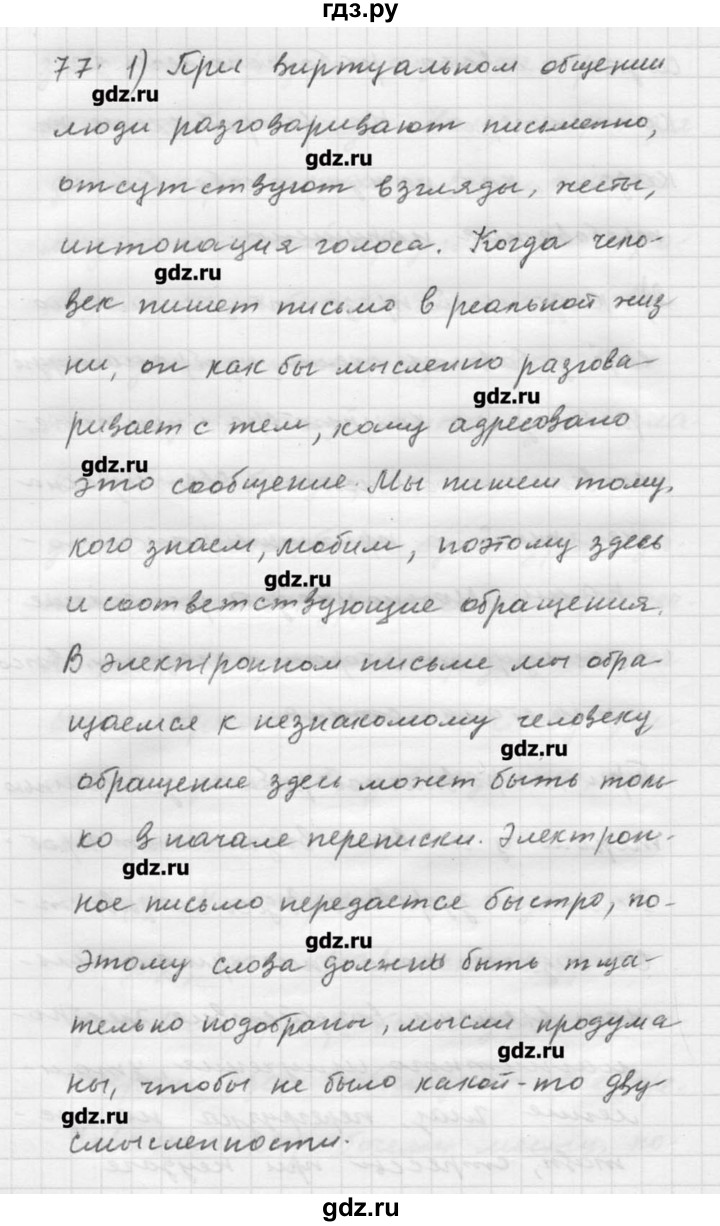 гдз.ру
77. 1) При виртуальном общении
gdz.ru
люди разговаривают письменно,
gdz.ru
отсутствуют взгляды, жесты,
интонация голоса. Когда чело-
gdz.ru
век пишет письмо в реальной жиз
ни, он как бы мысленно разгова-
gdz.ru
ривает с тем, кому адресовано
gdz.ru
это сообщение. Мы пишем тому,
кого знаем, любим, поэтому здесь
gdz.ru
и соответствующие обращения.
В электронном письме мы обра-
щаемся к незнакомому человеку
gdz.ru
обращение здесь может быть толь
ко в начале переписки. Электрон-
gdz.ru
ное письмо передается быстро, по-
gdz.ru
этому слова должны быть тща-
тельно подобраны, мысли продума
gdz.ru
ны, чтобы не было какой-то дву-
gdz.ru
смысленности.
gdz.ru